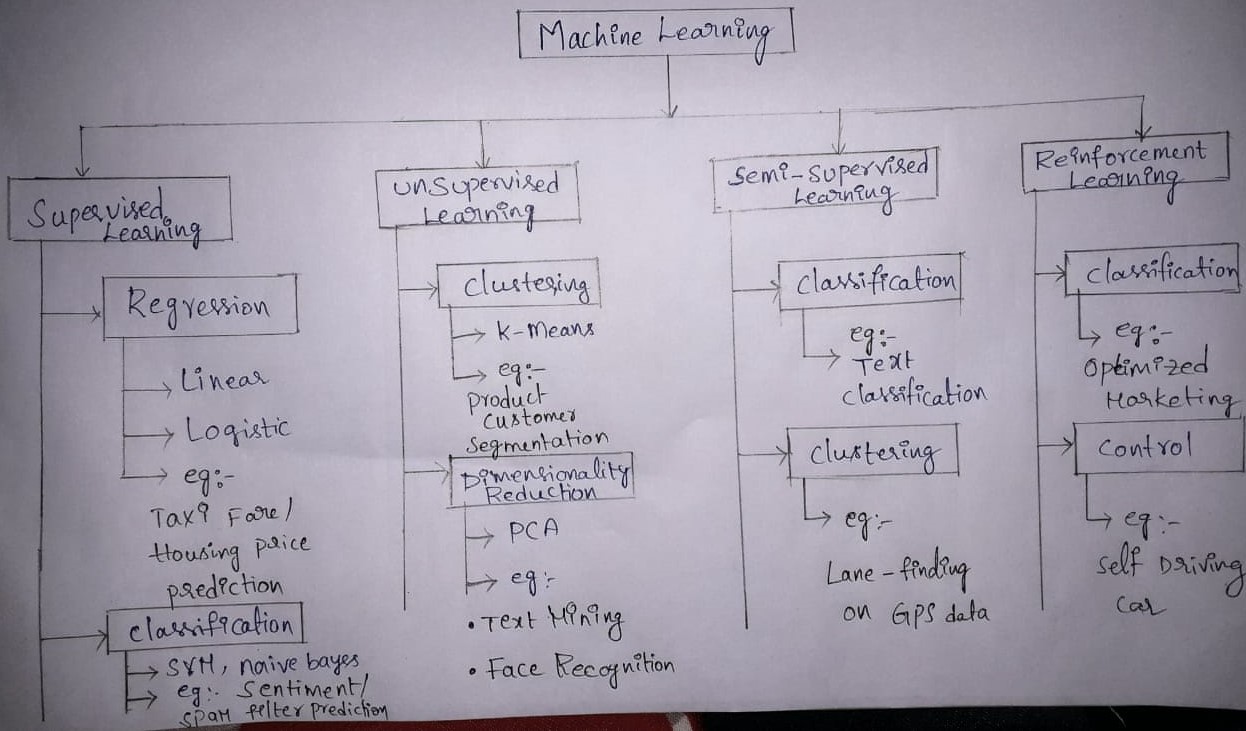 Machine Learning
Supervised
Learning
Regression
Linear
Logistic
eg:-
Taxi Fare/
Housing price
prediction
classification
SVM, naive bayes
eg:- Sentiment/
SPAM filter prediction
unsupervised
Learning
clustering
K-Means
eg:-
Product
customer
segmentation
Dimensionality
Reduction
PCA
eg:-
• Text Mining
• Face Recognition
Semi-Supervised
Learning
classification
eg:-
Text
classification
clustering
eg:-
Lane-finding
on GPS data
Reinforcement
Learning
classification
eg:-
Optimized
Marketing
control
eg:-
Self Driving
Car